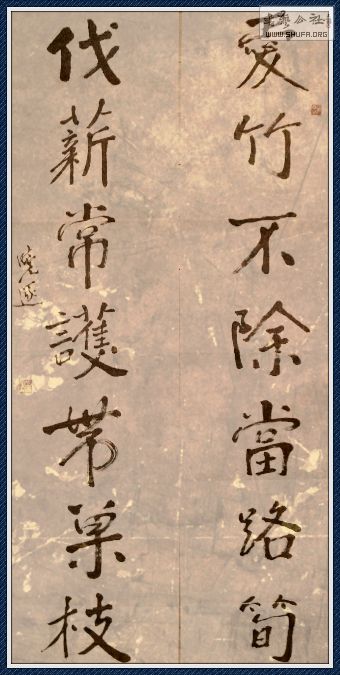 WWW.SHUFA.ORG
愛竹不除當路筍
伐薪常護帶巢枝